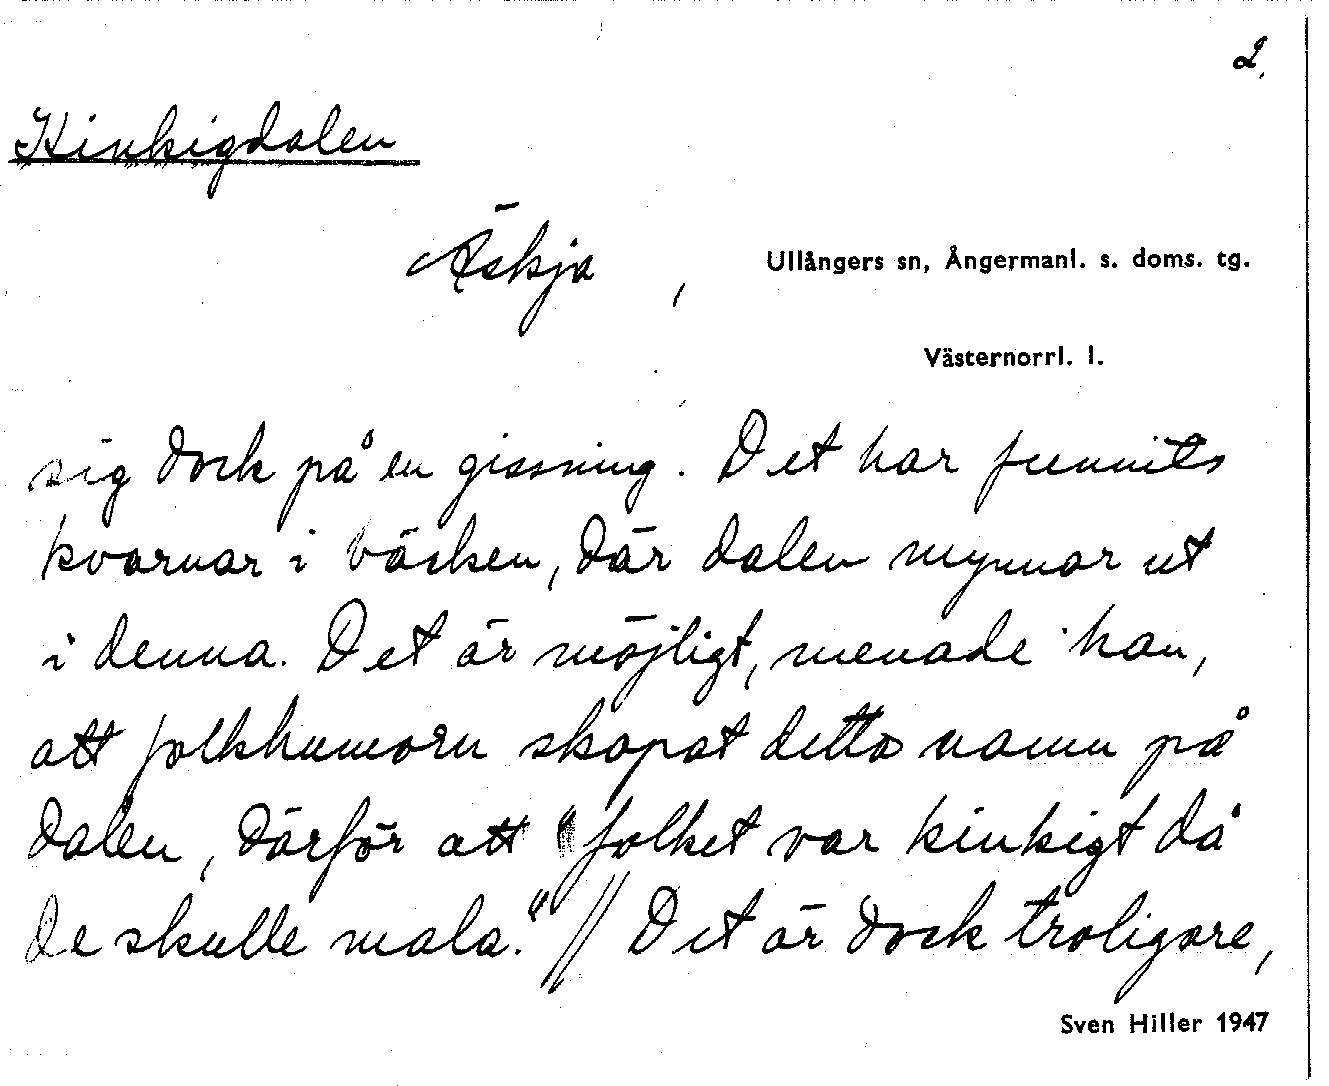 2.
Kinkigdalen
Äskja , Ullångers sn, Ångermanl. s. doms. tg.
Västernorrl. l.
sig dock på en gissning. Det har funnits
kvarnar i bäcken, där dalen mynnar ut
i denna. Det är möjligt, menade han,
att folkhumorn skapat detta namn på
dalen, därför att "folket var kinkigt då
de skulle mala." // Det är dock troligare,
Sven Hiller 1947